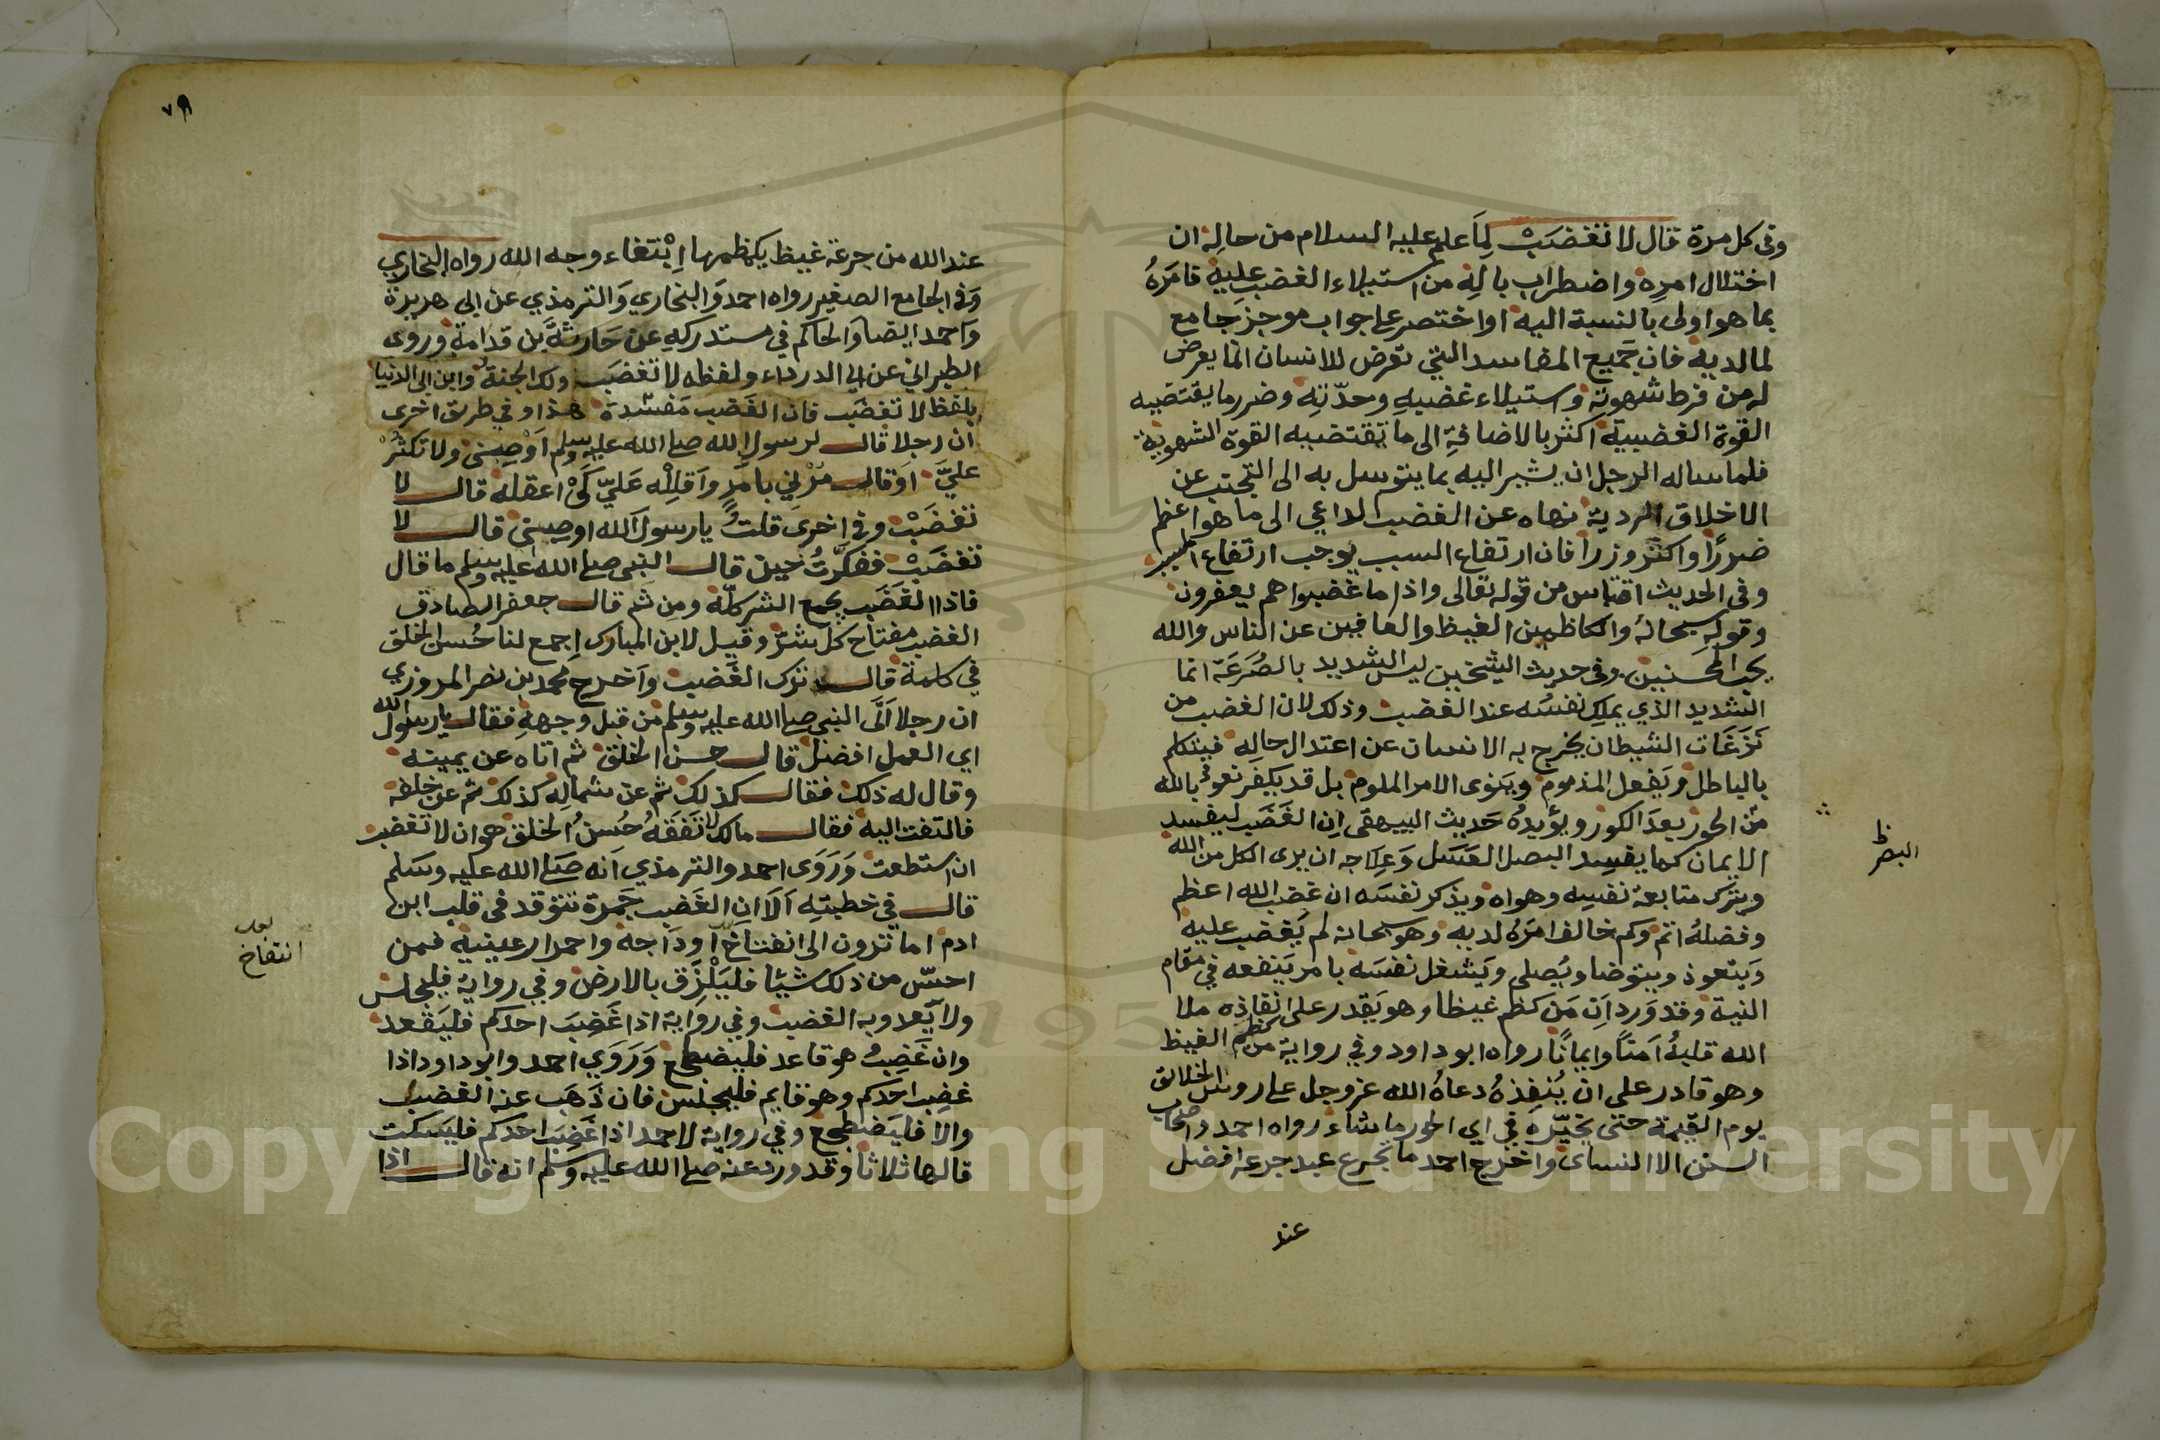 وفى كل مرة قال لا تغضبْ لِمَا علم عليه السلام من حاله ان
اختلال امرِه واضطراب بالِه من استيلاء الغضب عليه فامَرَهُ
بما هو اولى بالنسبة اليه او اختصر على جواب موجز جامع
لما لديه فان جميع المفاسد التي تعرض للانسان انما يعرض
له من فرط شهوته واستيلاء غضبه وحدّته وضرر ما يقتضيه
القوة الغضبية اكثر بالاضافة الى ما تقتضيه القوة الشهوية
فلما ساله الرجل ان يشير اليه بما يتوسل به الى التجنب عن
الاخلاق الردية نهاه عن الغضب الداعي الى ما هو اعظم
ضررًا واكثر وزرا فان ارتفاع السبب يوجب ارتفاع المسبب
وفى الحديث اقتباس من قوله تعالى واذا ما غضبوا هم يغفرون
وقوله سبحانه والكاظمين الغيظ والعافين عن الناس والله
يحب المحسنين وفى حديث الشيخين ليس الشديد بالصُرَعَة انما
الشديد الذي يملك نفسَه عند الغضب وذلك لان الغضب من
نَزَغَات الشيطان يخرج به الانسان عن اعتدال حاله فيتكلم
بالباطل ويفعل المذموم وينوى الامر الملوم بل قد يكفر نعوذ بالله
من الحور بعد الكور ويؤيدهُ حديث البيهقى ان الغَضَب ليفسد
الايمان كما يفسد البصل العسَل وَعِلاجه ان يرى الكل من الله
ويترك متابعة نفسِه وهواه ويذكر نفسَه ان غضب الله اعظم
وفضلهُ اتم وكم خالف امرَهُ لديه وهو سبحانه لم يَغضب عليه
وَيتعوذ ويتوضا ويُصلى ويَشغل نفسَه بامر يَنفعه في مقام
النية وقد وَرد اَن مَن كظم غيظا وهو يَقدر على انفاذه ملا
الله قلبهُ اَمنًا وايمانًا رواه ابو داود وفي رواية من كظم الغيظ
وهو قادر على ان يُنفذهُ دعاهُ الله عز وجل على رؤس الخلائق
يوم القيمة حتى يخيّره في اي الحور ما شاء رواه احمد واصحاب
السنن الا النساى واخرج احمد ما تجرع عبد جرعة افضل
عند
البصر ظ
٧٩
عند الله من جرعة غيظ يكظمها اِبْتغاء وجه الله رواه البخاري
وَفى الجامع الصغير رواه احمد وَالبخاري وَالترمذي عن ابى هريرة
وَاحمد ايضا وَالحاكم في مستدركه عن حَارثة بن قدامة وروى
الطبراني عن ابى الدرداء ولفظه لا تغضَب ولك الجنة وابن ابى الدنيا
بلفظ لا تغضَب فان الغَضب مَفسَدة هذا وفي طريق اخرى
ان رجلا قال لرسول الله صلى الله عليه وسلم اَوْصِنى ولا تكثرْ
عليَّ اَو قال مُرْني بامرٍ وَاَقلِلْه عَليّ كَىْ اعقله قال لا
تغضَبْ وفي اخرى قلتُ يا رسول الله اوصِنى قال لا
تغضَبْ ففكَّرتُ حين قال النبى صلى الله عليه وسلم ما قال
فاذا الغضَب يجمع الشر كلّه ومن ثم قال جعفر الصادق
الغضب مفتاح كل شرّ وقيل لابن المبارك اِجمع لنا حُسن الخلق
في كلمة قال ترك الغَضب وَاَخرج محمد بن نصر المروزي
ان رجلا اَتَى النبي صلى الله عليه وسلم من قبل وجهه فقال يا رسول الله
اي العمل افضل قال حسن الخلق ثم اتاه عن يمينه
وقال له ذلك فقال كذلك ثم عن شماله كذلك ثم عن خلفه
فالتفت اليه فقال مالك لا تَفقَهُ حُسنُ الخلق هو ان لا تغضب
ان استطعت وَرَوَى احمد والترمذي اَنه صَلى الله عليه وسَلم
قال في خطبته اَلَا ان الغَضب جَمرة تتوقد فى قلب ابن
ادم اما تَرون الى انفتاخ اودَاجه واحمرار عينيه فمن
احسّ من ذلك شيئًا فليَلْزَق بالارض وفي رواية فليجلس
ولا يَعدو به الغضب وفي رواية اذا غَضِبَ احدكم فليَقعد
وان غَضِب هو قاعد فليضطجع وَرَوَي احمد وابو داود اذا
غضِب احدكم وهو قايم فليجلس فان ذَهَب عنه الغضب
والا فليَضطجع وفي رواية لاحمد اذا غَضِبَ احدكم فليَسكت
قالها ثلاثا وقد ورد عنه صلى الله عليه وَسَلم انه قال اذا
انتفاخ